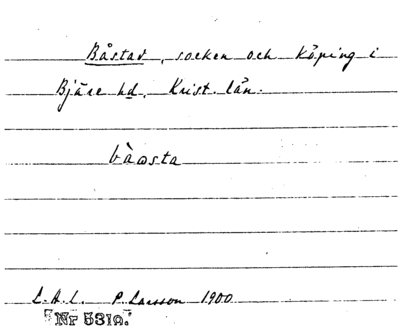 Båstad, socken och köping i
Bjäre hd. Krist. län.
bàωsta
L.A.L. P. Larsson 1900
Nr 5319.